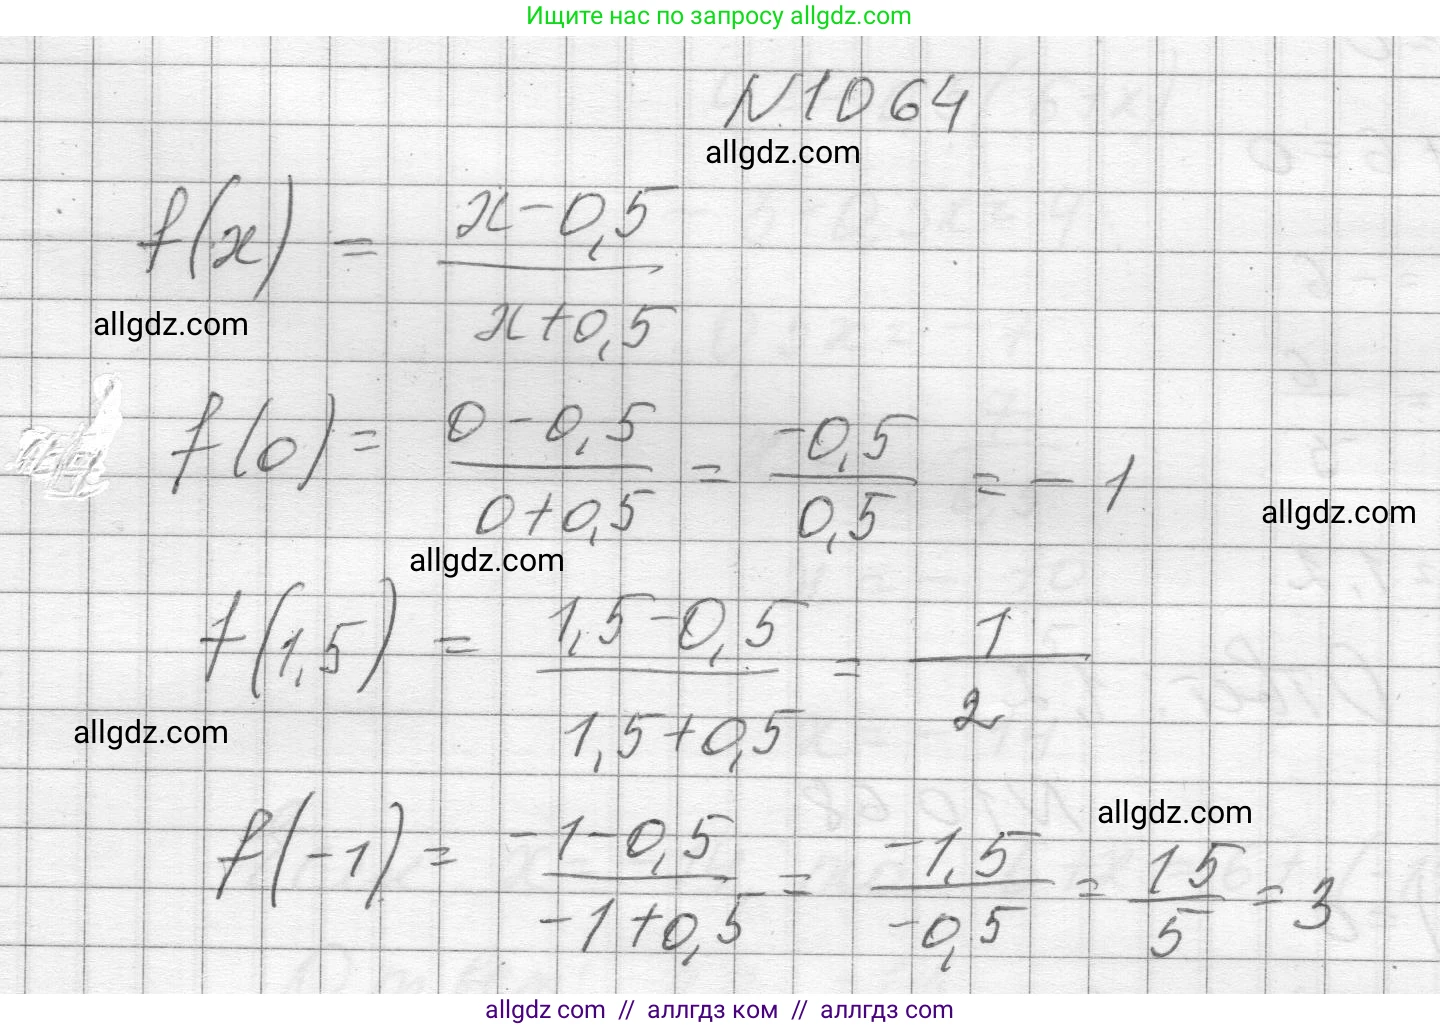 Ищите нас по запросу allgdz.com
N1064
allgdz.com
f(x) = (x-0,5)/(x+0,5)
allgdz.com
f(0) = (0-0,5)/(0+0,5) = (-0,5)/(0,5) = -1
allgdz.com
allgdz.com
f(1,5) = (1,5-0,5)/(1,5+0,5) = 1/2
allgdz.com
allgdz.com
f(-1) = (-1-0,5)/(-1+0,5) = (-1,5)/(-0,5) = 15/5 = 3
allgdz.com // аллгдз ком // аллгдз com